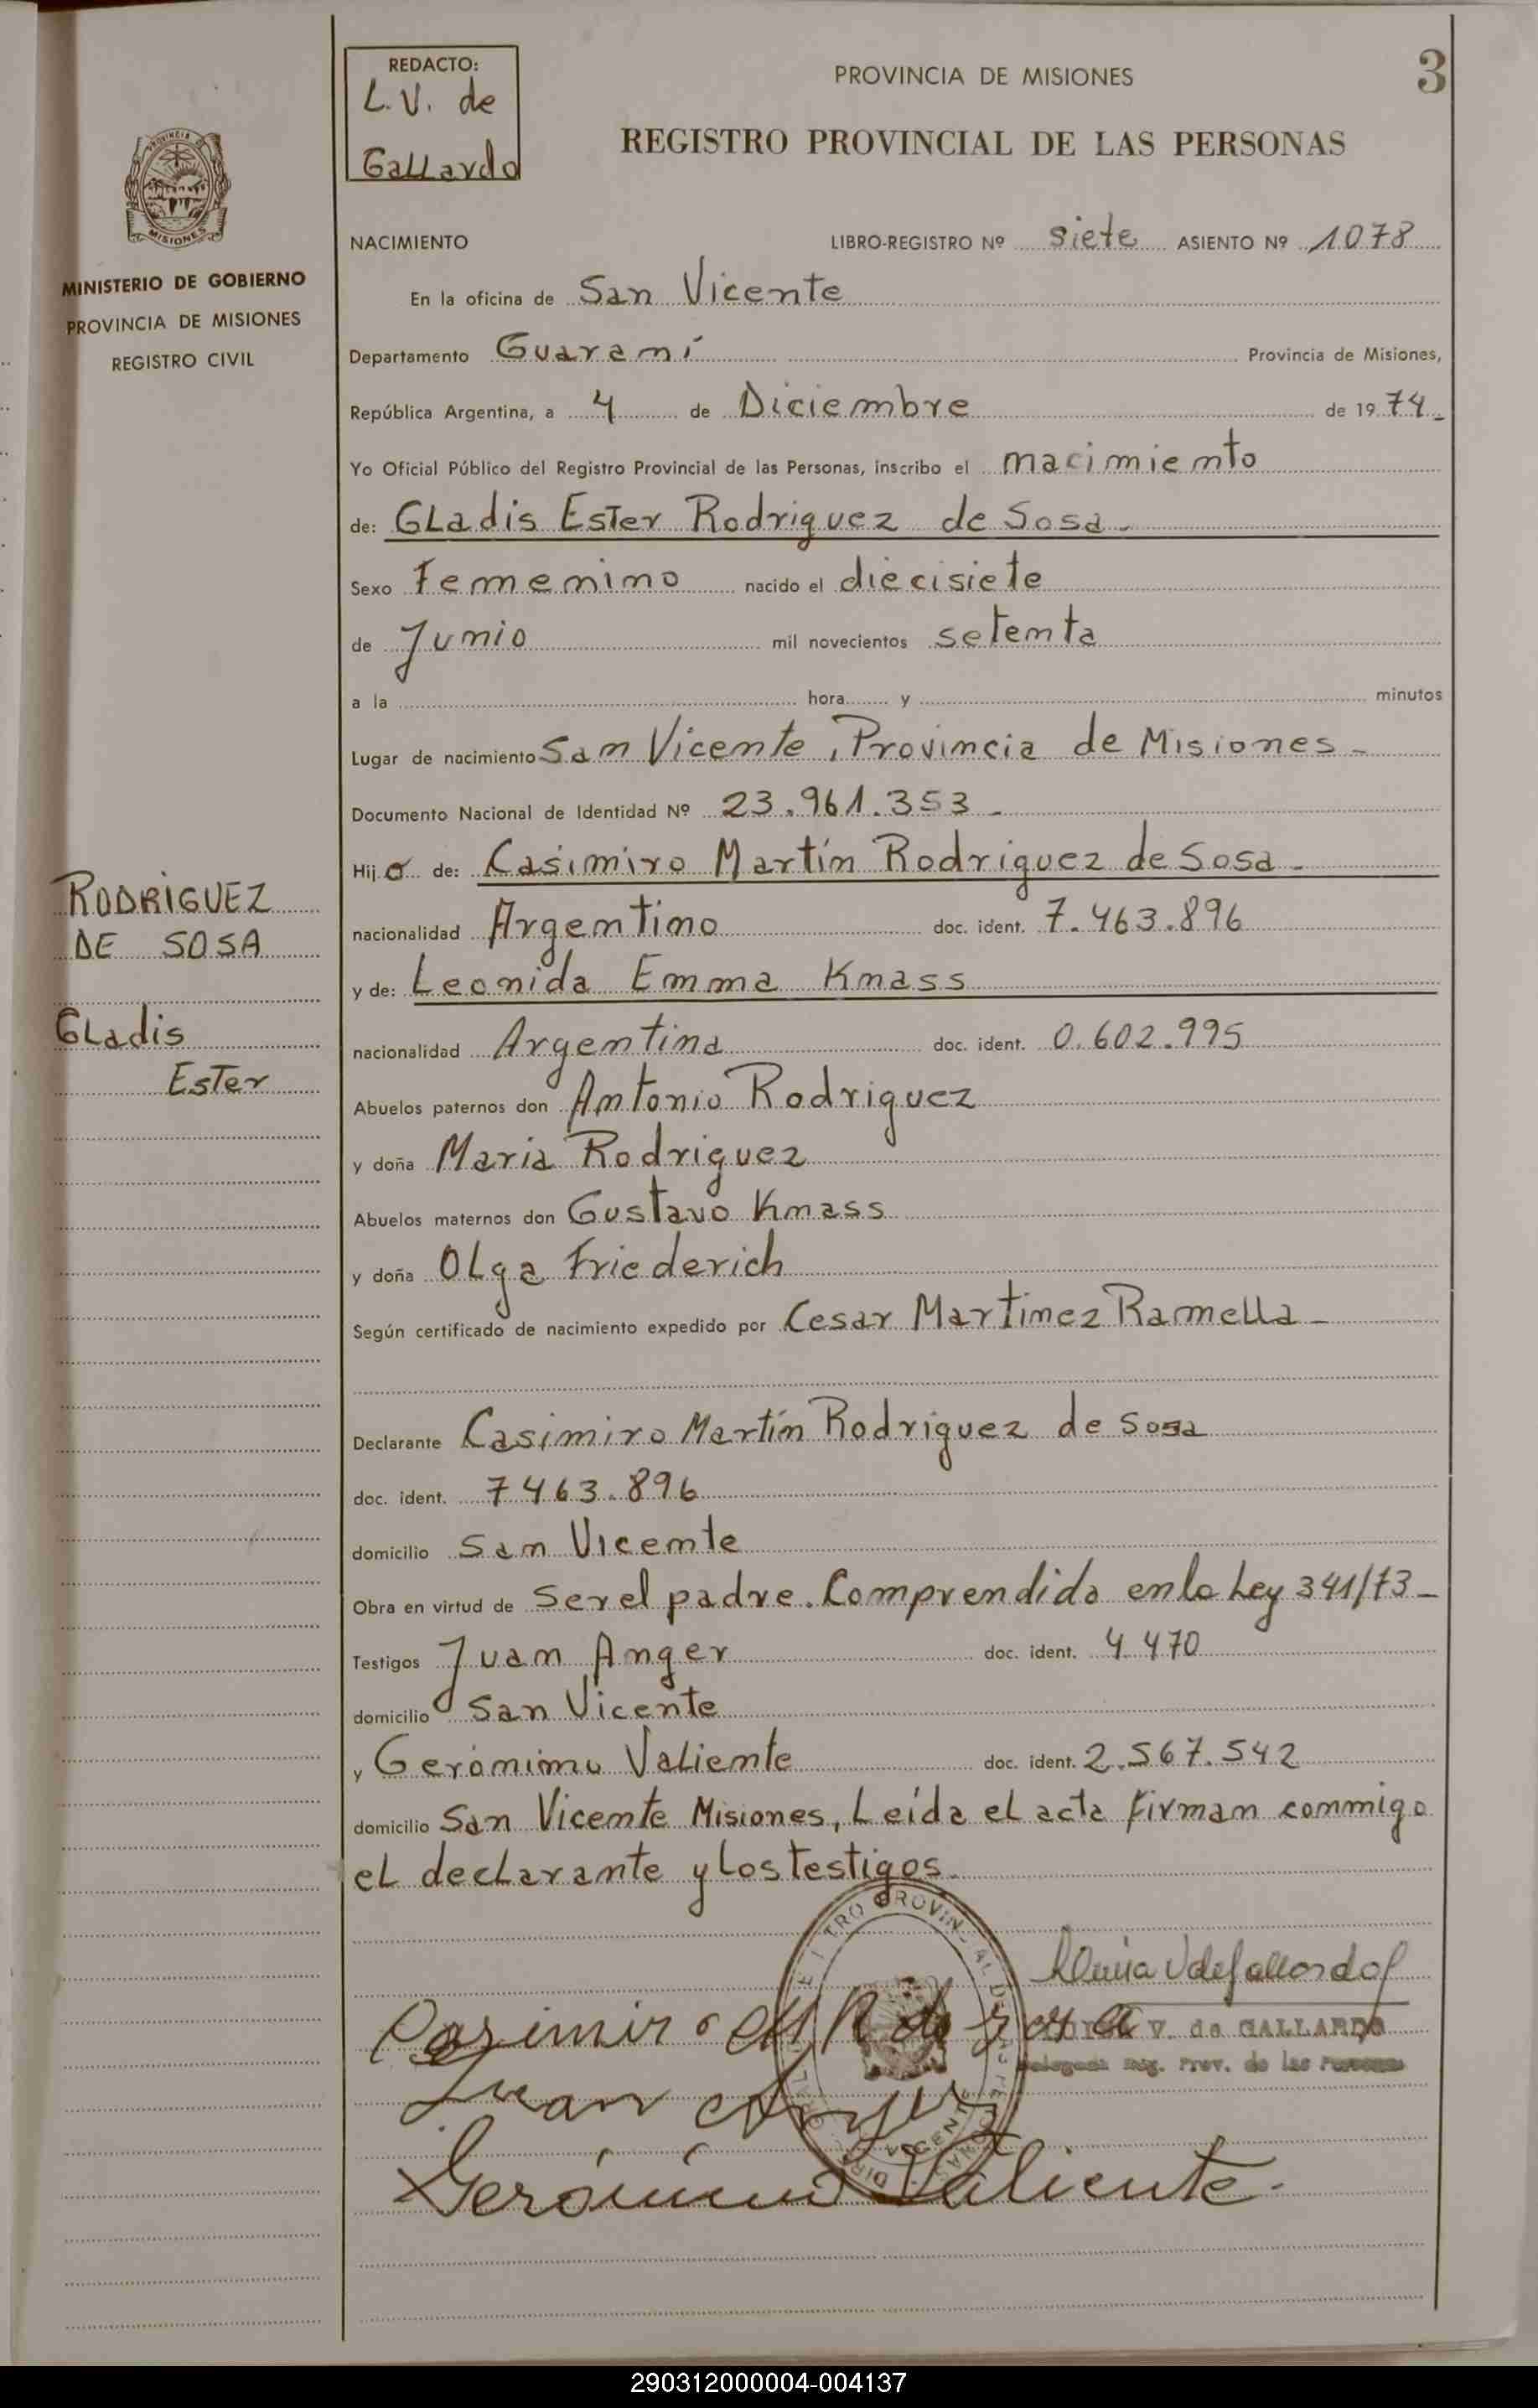 REDACTO:
L.V. de
Gallardo
PROVINCIA DE MISIONES
3
REGISTRO PROVINCIAL DE LAS PERSONAS
PROVINCIA DE
MISIONES
MINISTERIO DE GOBIERNO
PROVINCIA DE MISIONES
REGISTRO CIVIL
NACIMIENTO LIBRO-REGISTRO Nº siete ASIENTO Nº 1078
En la oficina de San Vicente
Departamento Guaraní Provincia de Misiones,
República Argentina, a 4 de Diciembre de 1974-
Yo Oficial Público del Registro Provincial de las Personas, inscribo el nacimiento
de: Gladis Ester Rodriguez de Sosa-
Sexo Femenino nacido el diecisiete
de Junio mil novecientos setenta
a la hora y minutos
Lugar de nacimiento San Vicente, Provincia de Misiones-
Documento Nacional de Identidad Nº 23.961.353-
Hija de: Casimiro Martín Rodriguez de Sosa-
nacionalidad Argentino doc. ident. 7.463.896
y de: Leonida Emma Knass
nacionalidad Argentina doc. ident. 0.602.995
Abuelos paternos don Antonio Rodriguez
y doña Maria Rodriguez
Abuelos maternos don Gustavo Knass
y doña Olga Friederich
Según certificado de nacimiento expedido por Cesar Martinez Ramella-
Declarante Casimiro Martín Rodriguez de Sosa
doc. ident. 7463.896
domicilio San Vicente
Obra en virtud de Ser el padre. Comprendido en la Ley 341/73-
Testigos Juan Anger doc. ident. 4.470
domicilio San Vicente
y Gerónimo Valiente doc. ident. 2.567.542
domicilio San Vicente Misiones, Leída el acta firman conmigo
el declarante y los testigos.
RODRIGUEZ
DE SOSA
Gladis
Ester
V. de GALLARDO
Reg. Prov. de las Personas
Casimiro M R de Sosa
Juan Anger
Gerónimo Valiente.
290312000004-004137